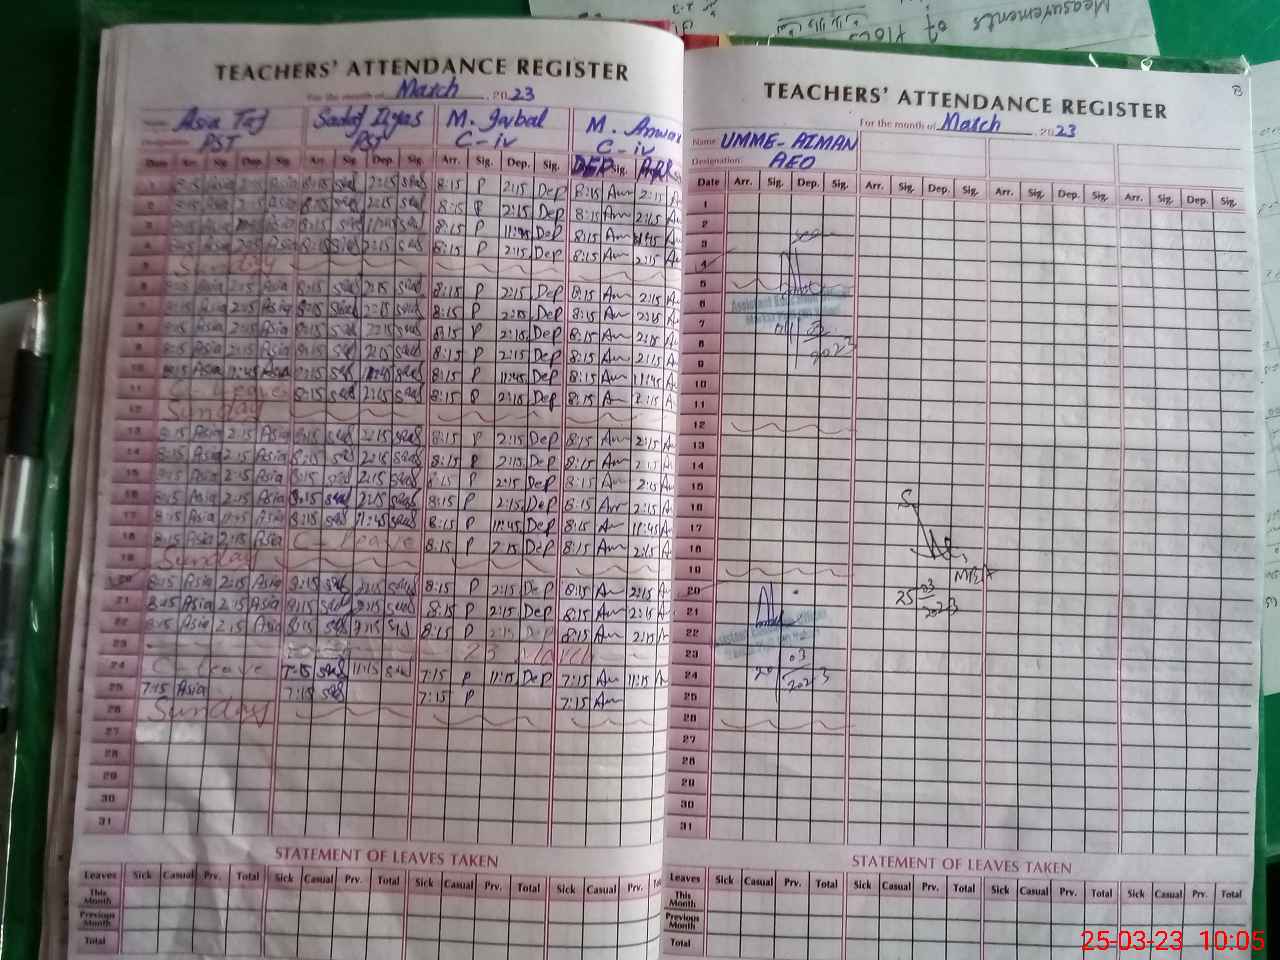 Measurements of Plots
TEACHERS' ATTENDANCE REGISTER
For the month of March 2023
Asia Taj Sadaf Ilyas M. Iqbal M. Anwar
PST PST C-iv C-iv
Date Arr. Sig. Dep. Sig. Arr. Sig. Dep. Sig. Arr. Sig. Dep. Sig. DEP Sig. ARR
1 8:15 Asia 2:15 Asia 8:15 sad 2:15 sad 8:15 P 2:15 Dep 8:15 An 2:15 A
2 8:15 Asia 2:15 Asia 8:15 sad 2:15 sad 8:15 P 2:15 Dep 8:15 An 2:15 A
3 8:15 Asia Asia 8:15 sad 11:45 sad 8:15 P 11:45 Dep 8:15 An 11:45 A
4 8:15 Asia 2:15 Asia 8:15 sad 2:15 sad 8:15 P 2:15 Dep 8:15 An 2:15 A
5 Sunday
6 8:15 Asia 2:15 Asia 8:15 sad 2:15 sad 8:15 P 2:15 Dep 8:15 An 2:15 A
7 8:15 Asia 2:15 Asia 8:15 sad 2:15 sad 8:15 P 2:15 Dep 8:15 An 2:15 A
8 8:15 Asia 2:15 Asia 8:15 sad 2:15 sad 8:15 P 2:15 Dep 8:15 An 2:15 A
9 8:15 Asia 2:15 Asia 8:15 sad 2:15 sad 8:15 P 2:15 Dep 8:15 An 2:15 A
10 8:15 Asia 11:45 Asia 8:15 sad 11:45 sad 8:15 P 11:45 Dep 8:15 An 11:45 A
11 C-leave 8:15 sad 2:15 sad 8:15 P 2:15 Dep 8:15 An 2:15 A
12 Sunday
13 8:15 Asia 2:15 Asia 8:15 sad 2:15 sad 8:15 P 2:15 Dep 8:15 An 2:15 A
14 8:15 Asia 2:15 Asia 8:15 sad 2:15 sad 8:15 P 2:15 Dep 8:15 An 2:15 A
15 8:15 Asia 2:15 Asia 8:15 sad 2:15 sad 8:15 P 2:15 Dep 8:15 An 2:15 A
16 8:15 Asia 2:15 Asia 8:15 sad 2:15 sad 8:15 P 2:15 Dep 8:15 An 2:15 A
17 8:15 Asia 11:45 Asia 8:15 sad 11:45 sad 8:15 P 11:45 Dep 8:15 An 11:45 A
18 8:15 Asia 2:15 Asia C-leave 8:15 P 2:15 Dep 8:15 An 2:15 A
19 Sunday
20 8:15 Asia 2:15 Asia 8:15 sad 2:15 sad 8:15 P 2:15 Dep 8:15 An 2:15 A
21 8:15 Asia 2:15 Asia 8:15 sad 2:15 sad 8:15 P 2:15 Dep 8:15 An 2:15 A
22 8:15 Asia 2:15 Asia 8:15 sad 2:15 sad 8:15 P 2:15 Dep 8:15 An 2:15 A
23 23 March
24 C-leave 7:15 sad 11:15 sad 7:15 P 11:15 Dep 7:15 An 11:15 A
25 7:15 Asia 7:15 sad 7:15 P 7:15 An
26 Sunday
27
28
29
30
31
STATEMENT OF LEAVES TAKEN
Leaves Sick Casual Prv. Total Sick Casual Prv. Total Sick Casual Prv. Total Sick Casual Prv.
This Month
Previous Month
Total
TEACHERS' ATTENDANCE REGISTER
For the month of March 2023
Name UMME-AIMAN
Designation AEO
Date Arr. Sig. Dep. Sig. Arr. Sig. Dep. Sig. Arr. Sig. Dep. Sig. Arr. Sig. Dep. Sig.
1
2
3
4
5
6
7
8 2023
9
10
11
12
13
14
15
16
17
18
19 MEA
20 25 03
21 2023
22
23 03
24 20 2023
25
26
27
28
29
30
31
STATEMENT OF LEAVES TAKEN
Leaves Sick Casual Prv. Total Sick Casual Prv. Total Sick Casual Prv. Total Sick Casual Prv. Total
This Month
Previous Month
Total
25-03-23 10:05